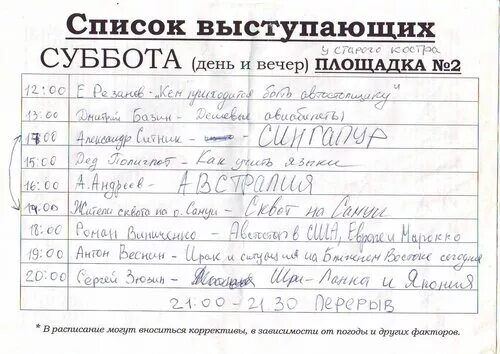 Список выступающих
у старого костра
СУББОТА (день и вечер) ПЛОЩАДКА №2
12:00 Е. Резанов - "Кем приходится быть автостопщику"
13:00 Дмитрий Базин - Дешёвые авиабилеты
17:00 Александр Ситник - СИНГАПУР
15:00 Дед Полиглот - Как учить языки
16:00 А. Андреев - АВСТРАЛИЯ
14:00 Жители сквота на о. Сануи - Сквот на Сануи
18:00 Роман Виниченко - Автостоп в США, Европе и Марокко
19:00 Антон Веснин - Ирак и ситуация на Ближнем Востоке сегодня
20:00 Сергей Зюзин - Шри-Ланка и Япония
21.00 - 21.30 ПЕРЕРЫВ
* В расписание могут вноситься коррективы, в зависимости от погоды и других факторов.